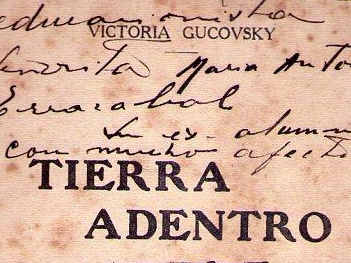 educacionista
VICTORIA GUCOVSKY
Señorita Maria Anto
Errazabal
Su ex-alumn
con mucho afecto
TIERRA
ADENTRO